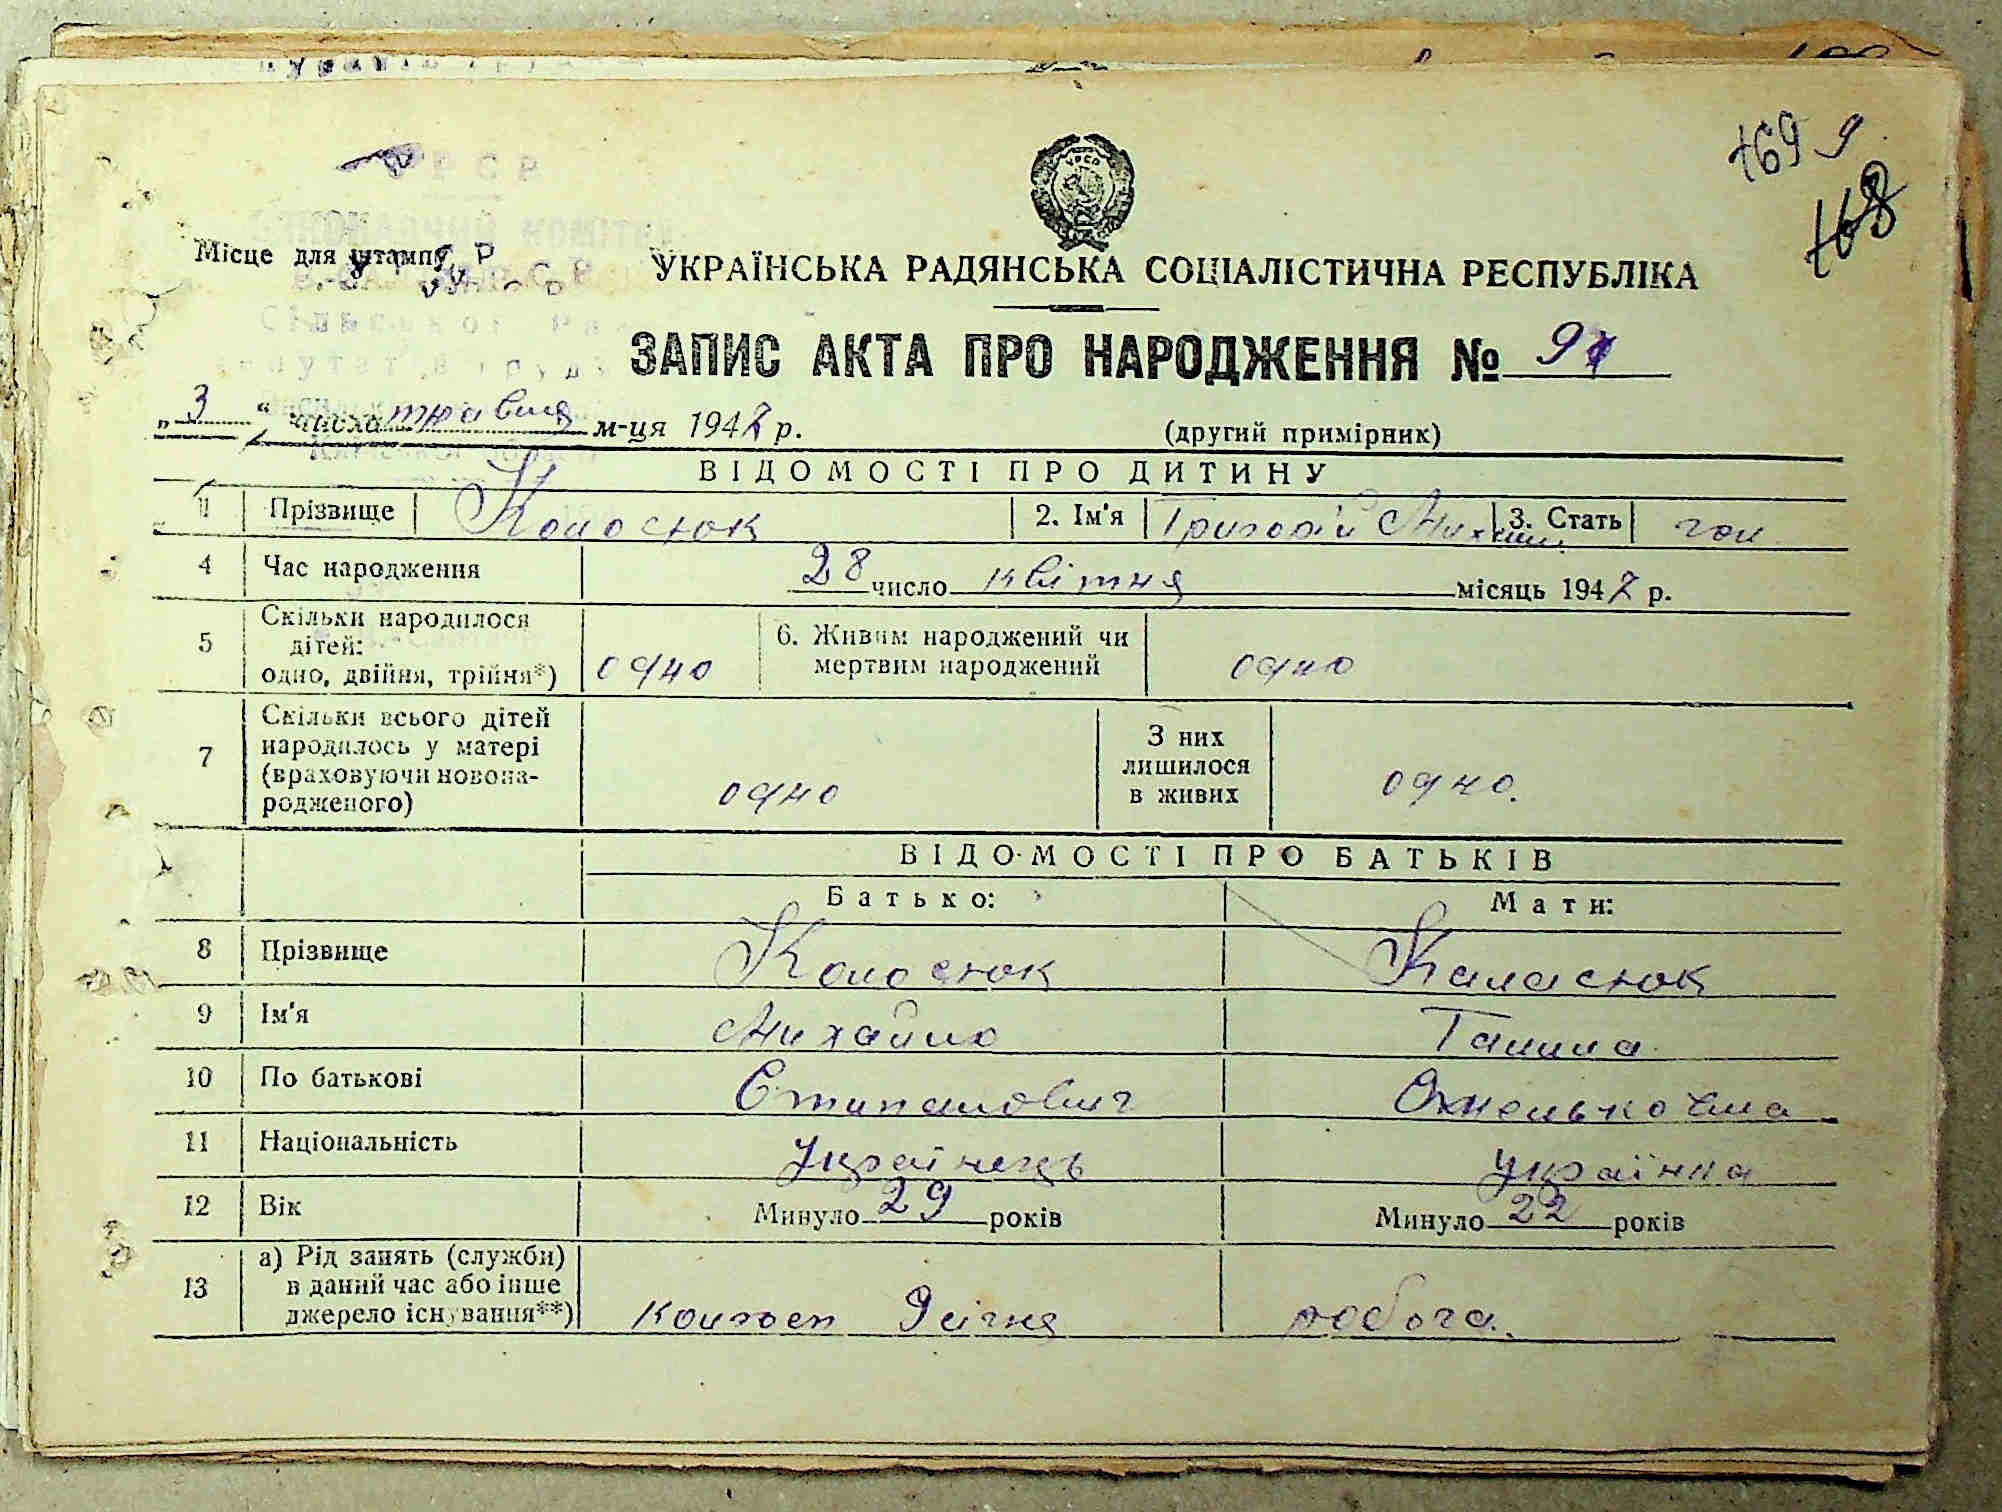 169
168
УРСР
Місце для штампу
УКРАЇНСЬКА РАДЯНСЬКА СОЦІАЛІСТИЧНА РЕСПУБЛІКА
ЗАПИС АКТА ПРО НАРОДЖЕННЯ №
„ 3 “ числа травня м-ця 1947 р. (другий примірник)
ВІДОМОСТІ ПРО ДИТИНУ
1 Прізвище Колосюк 2. Ім'я Григорій 3. Стать чол
4 Час народження 28 число квітня місяць 1947 р.
5 Скільки народилося дітей: одно, двійня, трійня*) одно 6. Живим народжений чи мертвим народжений одно
7 Скільки всього дітей народилось у матері (враховуючи новонародженого) одно З них лишилося в живих одно.
ВІДОМОСТІ ПРО БАТЬКІВ
Батько: Мати:
8 Прізвище Колосюк Каласюк
9 Ім'я Михайло Ганна
10 По батькові Стипанович
11 Національність Українець українка
12 Вік Минуло 29 років Минуло 22 років
13 а) Рід занять (служби) в даний час або інше джерело існування**)